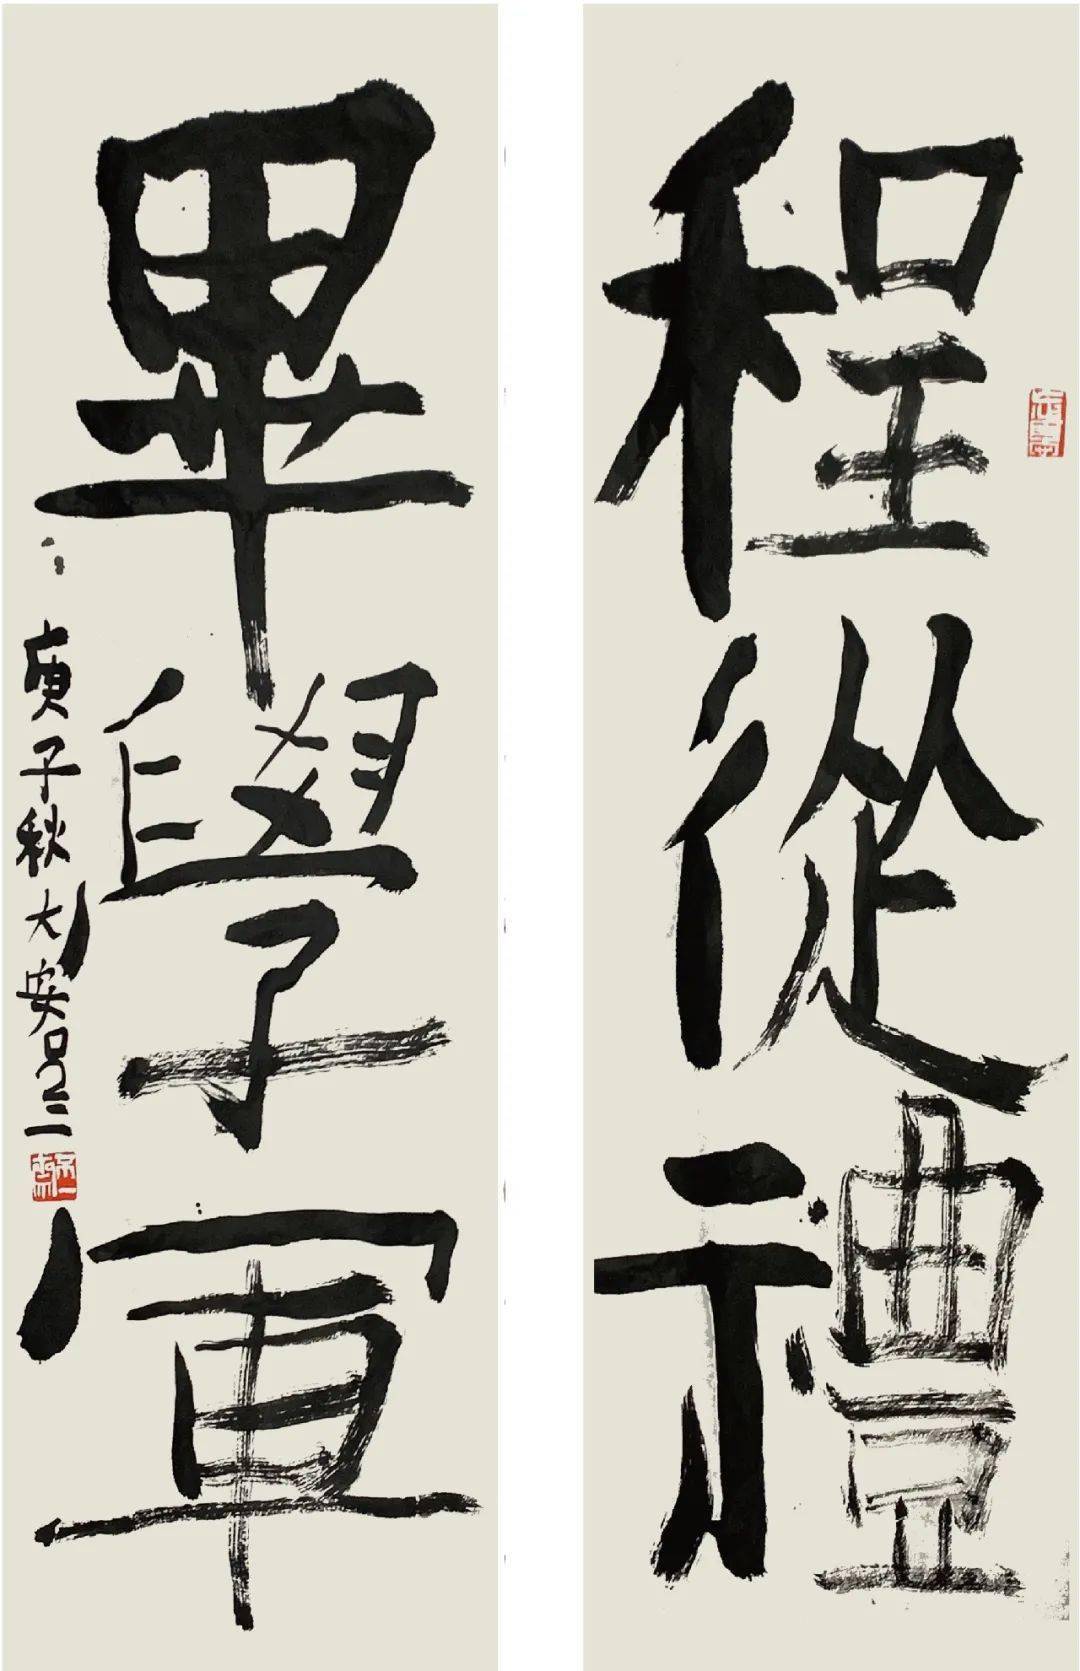 程從禮
畢學軍
庚子秋大安